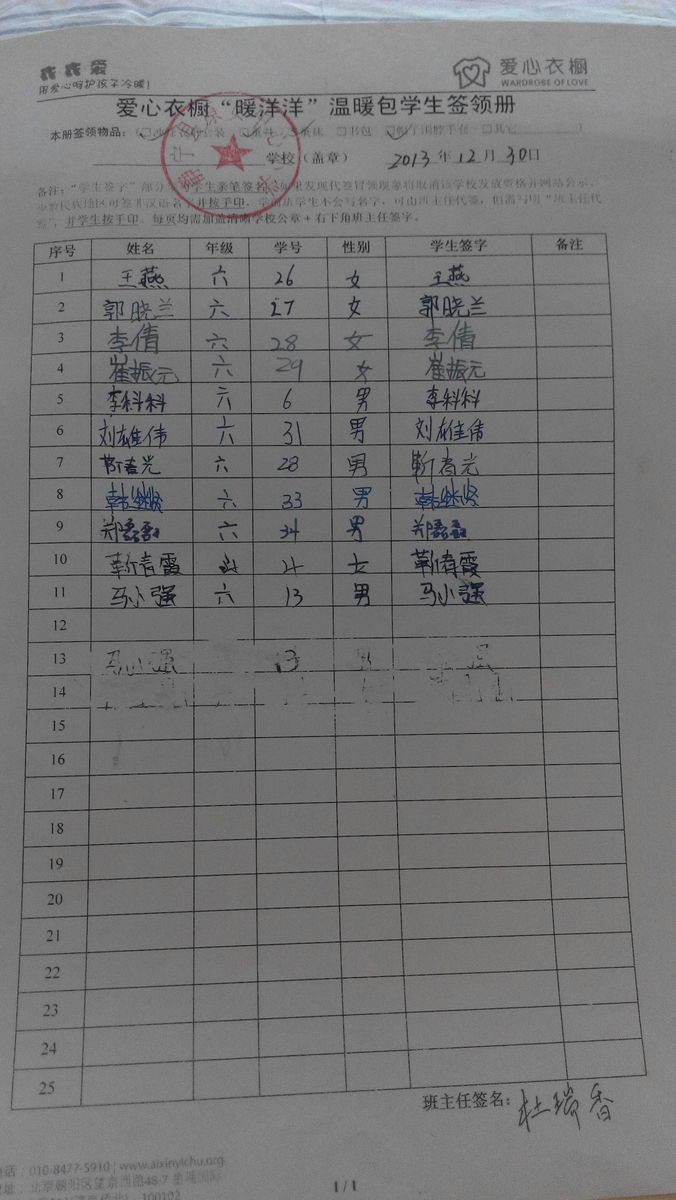 衣衣袋
用爱心呵护孩子冷暖!
爱心衣橱
WARDROBE OF LOVE
爱心衣橱“暖洋洋”温暖包学生签领册
本册签领物品: 书包 其它
学校(盖章) 2013 年 12 月 30 日
备注:“学生签字”部分 学生亲笔签名, 如果发现代签冒领现象将取消该学校发放资格并网站公示,
少数民族地区可签非汉语名字并按手印, 学生不会写名字,可由班主任代签,但需写明“班主任代
签”,并学生按手印。每页均需加盖清晰学校公章+右下角班主任签字。
序号 姓名 年级 学号 性别 学生签字 备注
1 王燕 六 26 女 王燕
2 郭晓兰 六 27 女 郭晓兰
3 李倩 六 28 女 李倩
4 崔振元 六 29 女 崔振元
5 李科科 六 6 男 李科科
6 刘雄伟 六 31 男 刘雄伟
7 六 28 男
8 韩继贤 六 33 男 韩继贤
9 郑磊磊 六 34 男 郑磊磊
10 靳春霞 4 女 靳春霞
11 马小强 六 13 男 马小强
12
13 马小强 13 强
14
15
16
17
18
19
20
21
22
23
24
25
班主任签名: 杜瑞香
电话:010-8477-5910 | www.aixinyichu.org
地址:北京朝阳区望京西路48-7 金隅国际
100102
1 / 1